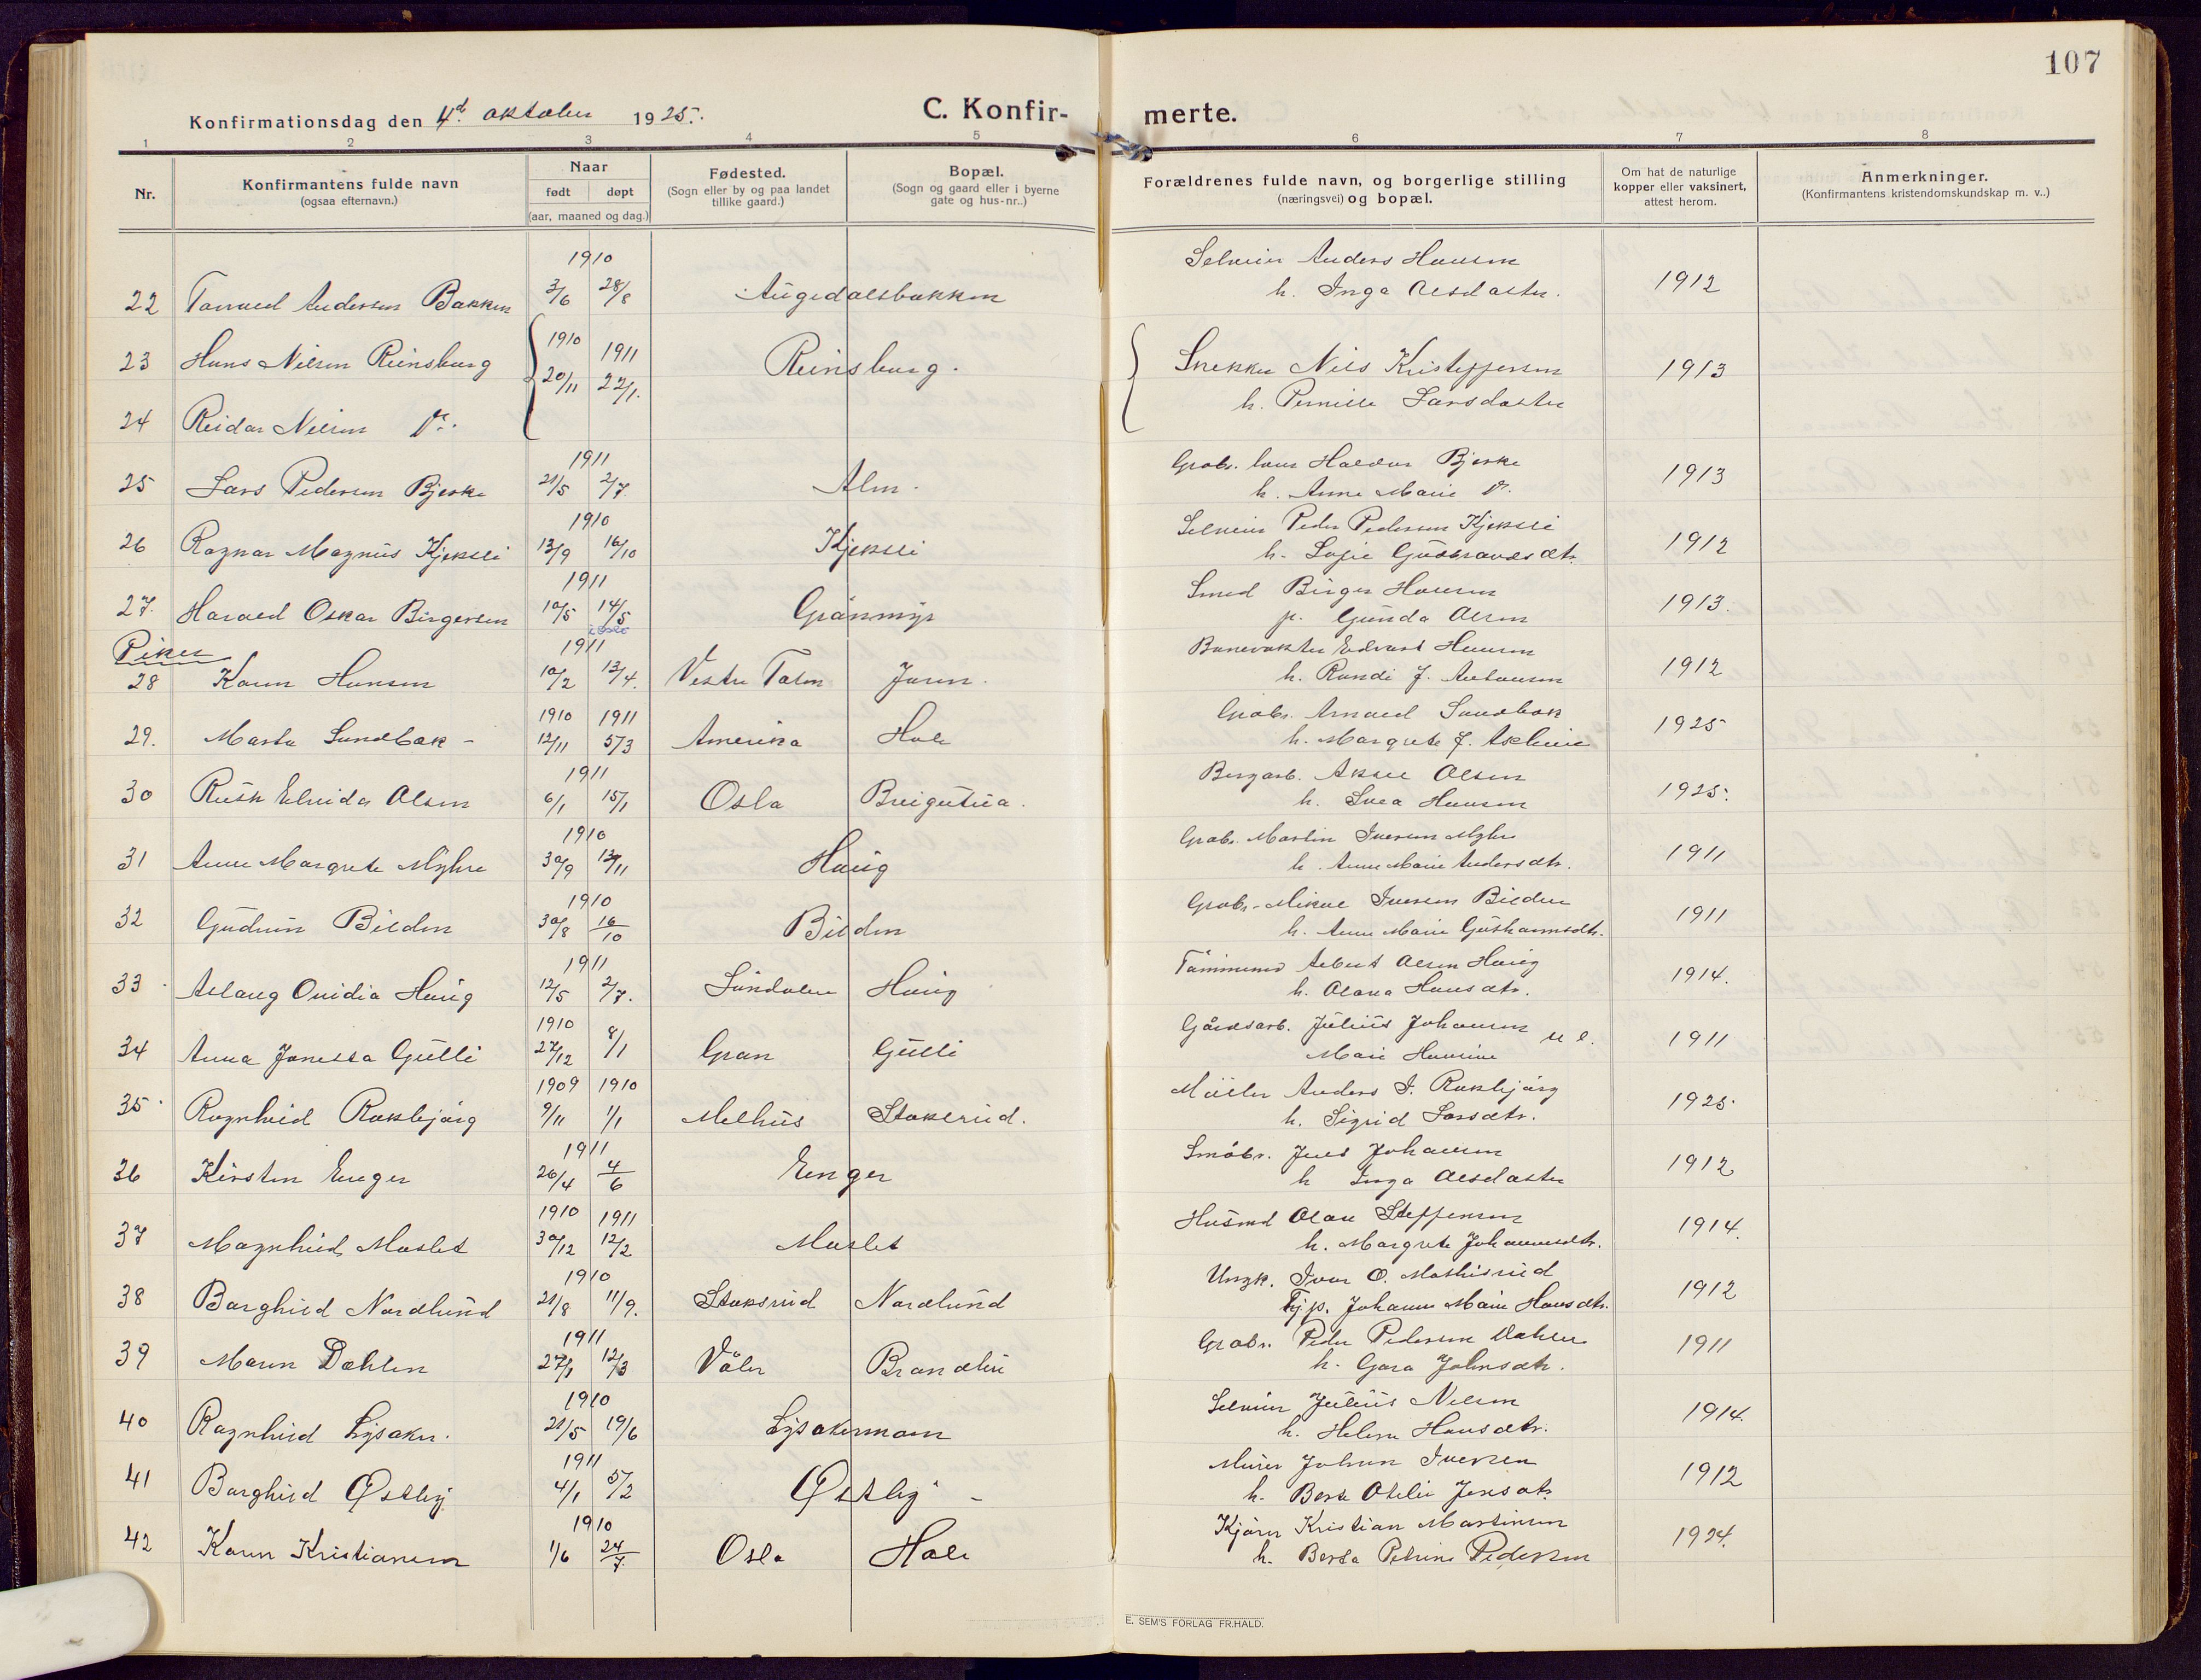 107
Konfirmationsdag den 4d oktober 1925.
C. Konfir- merte.
1 2 3 4 5 6 7 8
Nr.
Konfirmantens fulde navn
(ogsaa efternavn.)
Naar
født døpt
(aar, maaned og dag.)
Fødested.
(Sogn eller by og paa landet
tillike gaard.)
Bopæl.
(Sogn og gaard eller i byerne
gate og hus-nr..)
Forældrenes fulde navn, og borgerlige stilling
(næringsvei) og bopæl.
Om hat de naturlige
kopper eller vaksinert,
attest herom.
Anmerkninger.
(Konfirmantens kristendomskundskap m. v..)
1910 Selveier Anders Hansen
22 Torvald Andersen Bakken 3/6 28/8 Augedalsbakken h. Inga Olsdatter. 1912
1910 1911
23 Hans Nilsen Reinsburg 20/11 22/1. Reinsburg. Snekker Nils Kristoffersen 1913
h. Pernille Larsdatter
24 Reidar Nilsen Do.
1911 Grabr. Haldor Bjerke
25 Lars Pedersen Bjerke 21/5 2/7. Alm. h. Anne Marie Do. 1913
1910 Selveier Peder Pedersen Kjeksli
26 Ragnar Magnus Kjeksli 13/9 16/10 Kjeksli h. Sofie Gudbrandsdtr. 1912
1911 Smed Birger Hansen
27. Harald Oskar Birgersen 10/5 14/5 Grønmyr p. Gunda Olsen 1913.
Piker
1911 Banevokter Edvard Hansen
28 Karen Hansen 10/2 13/4. Vestre Toten Jaren. h. Randi J. 1912
1910 1911 Grabr. Arnold Sundbak
29. Marta Sundbak - 12/11 5/3 Amerika Hole h. Margrete J. 1925
1911 Bergarb. Aksel Olsen
30 Ruth Elvida Olsen 6/1 15/1 Oslo h. Svea Hansen 1925.
1910 Grabr. Martin Iversen Myhre
31 Anne Margrete Myhre 30/9 13/11 Haug h. Anne Marie Andersdtr. 1911
1910 Grabr. Mikal Iversen Bilden
32 Gudrun Bilden 30/8 16/10 Bilden h. Anne Marie 1911
1911 Tømmermd Albert Olsen Haug
33 Aslaug Ovidia Haug 12/5 2/7. Søndalen Haug h. Olava Hansdtr. 1914.
1910 Gårdsarb. Julius Johansen u e.
34 Anna Jonetta Gulli 27/12 8/1 Gran Gulli Marie Hansine 1911
1909 1910 Møller Anders I. Rokbjørg
35. Ragnhild Rokbjørg 9/11 1/1 Melhus Stokserud. h. Sigrid Larsdtr. 1925.
1911 Småbr. Jens Johansen
36 Kirsten Enger 26/4 4/6 Enger h Inga Olsdatter 1912
1910 1911 Husmd Olav Steffensen
37 Magnhild Moslet 30/12 12/2 Moslet h. Margrete Johannesdtr. 1914.
1910 Ungk. Ivar O. Mathisrud
38 Borghild Nordlund 21/8 11/9. Stoksrud Nordlund Tj.p. Johanne Marie Hansdtr. 1912
1911 Grabr. Peder Pedersen Dahlen
39 Maren Dæhlen 27/1 12/3 Våler Brandlie h. Gora Johnsdtr. 1911
1910 Selveier Julius Nilsen
40 Ragnhild Lysaker. 21/5 19/6 Lysakermoen h. Helene Hansdtr. 1914.
1911 Murer Johan Iversen
41 Borghild Østby. 4/1 5/2 Østby - h. Berte Otelie Jensdtr. 1912
1910 Kjører Kristian Martinsen
42 Karen Kristiansen 1/6 24/7 Oslo Hole h. Berta Petrine Pedersen 1924.
E. SEM'S FORLAG FR.HALD.